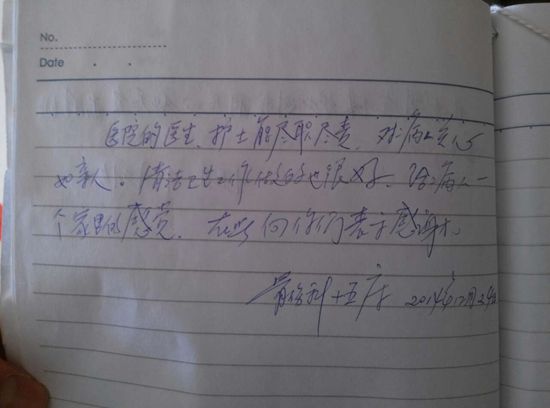 No.
Date
医院的医生、护士能尽职尽责，对病人关心
如亲人。清洁卫生工作做的也很好，给病人一
个家里的感觉，在此向你们表示感谢！
骨伤科十五床 2014年12月24日